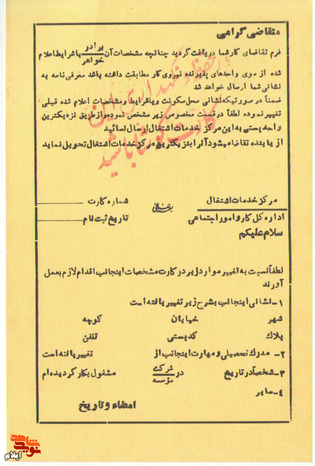 متقاضی گرامی
فرم تقاضای کار شما دریافت گردید چنانچه مشخصات آن برادر خواهر با شرایط اعلام
شده از موی واحدهای پذیرنده نیروی کار مطابقت داشته باشد معرفی نامه به
نشانی شما ارسال خواهد شد
ضمناً در صورتیکه نشانی محل سکونت و یا شرایط و مشخصات اعلام شده قبلی
تغییر نموده لطفاً در قسمت مخصوص زیر مشخص نموده و از طریق نزدیکترین
واحد پستی به این مرکز خدمات اشتغال ارسال نمائید
از یابنده تقاضا میشود آنرا بنزدیکترین مرکز خدمات اشتغال تحویل نماید
مرکز خدمات اشتغال
شماره کارت
اداره کل کار و امور اجتماعی
تاریخ ثبت نام
سلام علیکم
لطفاً نسبت به تغییر موارد زیر در کارت مشخصات اینجانب اقدام لازم بعمل
آورند
۱- نشانی اینجانب بشرح زیر تغییر یافته است
شهر خیابان کوچه
پلاک کدپستی تلفن
۲- مدرک تحصیلی و مهارت اینجانب از تغییر یافته است
۳- شخصاً در تاریخ در شرکت موسسه مشغول بکار گردیده ام
۴- سایر
امضاء و تاریخ